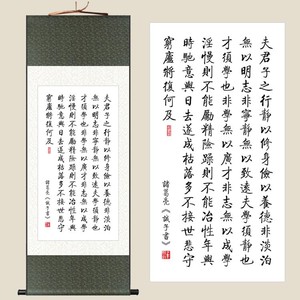 夫君子之行靜以修身儉以養德非淡泊
無以明志非寧靜無以致遠夫學須靜也
才須學也非學無以廣才非志無以成學
淫慢則不能勵精險躁則不能治性年與
時馳意與日去遂成枯落多不接世悲守
窮廬將復何及
諸葛亮《誡子書》
夫君子之行靜以修身儉以養德非淡泊
無以明志非寧靜無以致遠夫學須靜也
才須學也非學無以廣才非志無以成學
淫慢則不能勵精險躁則不能治性年與
時馳意與日去遂成枯落多不接世悲守
窮廬將復何及
諸葛亮《誡子書》